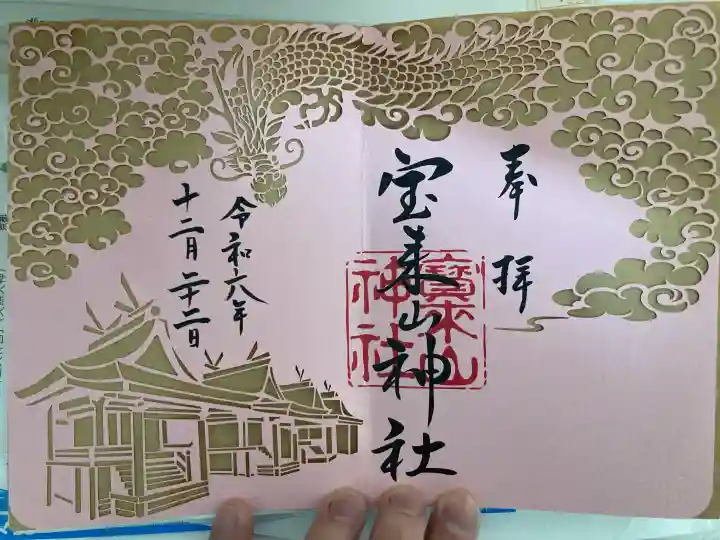 奉拝
宝来山神社
寶来山
神社
令和六年
十二月二十二日